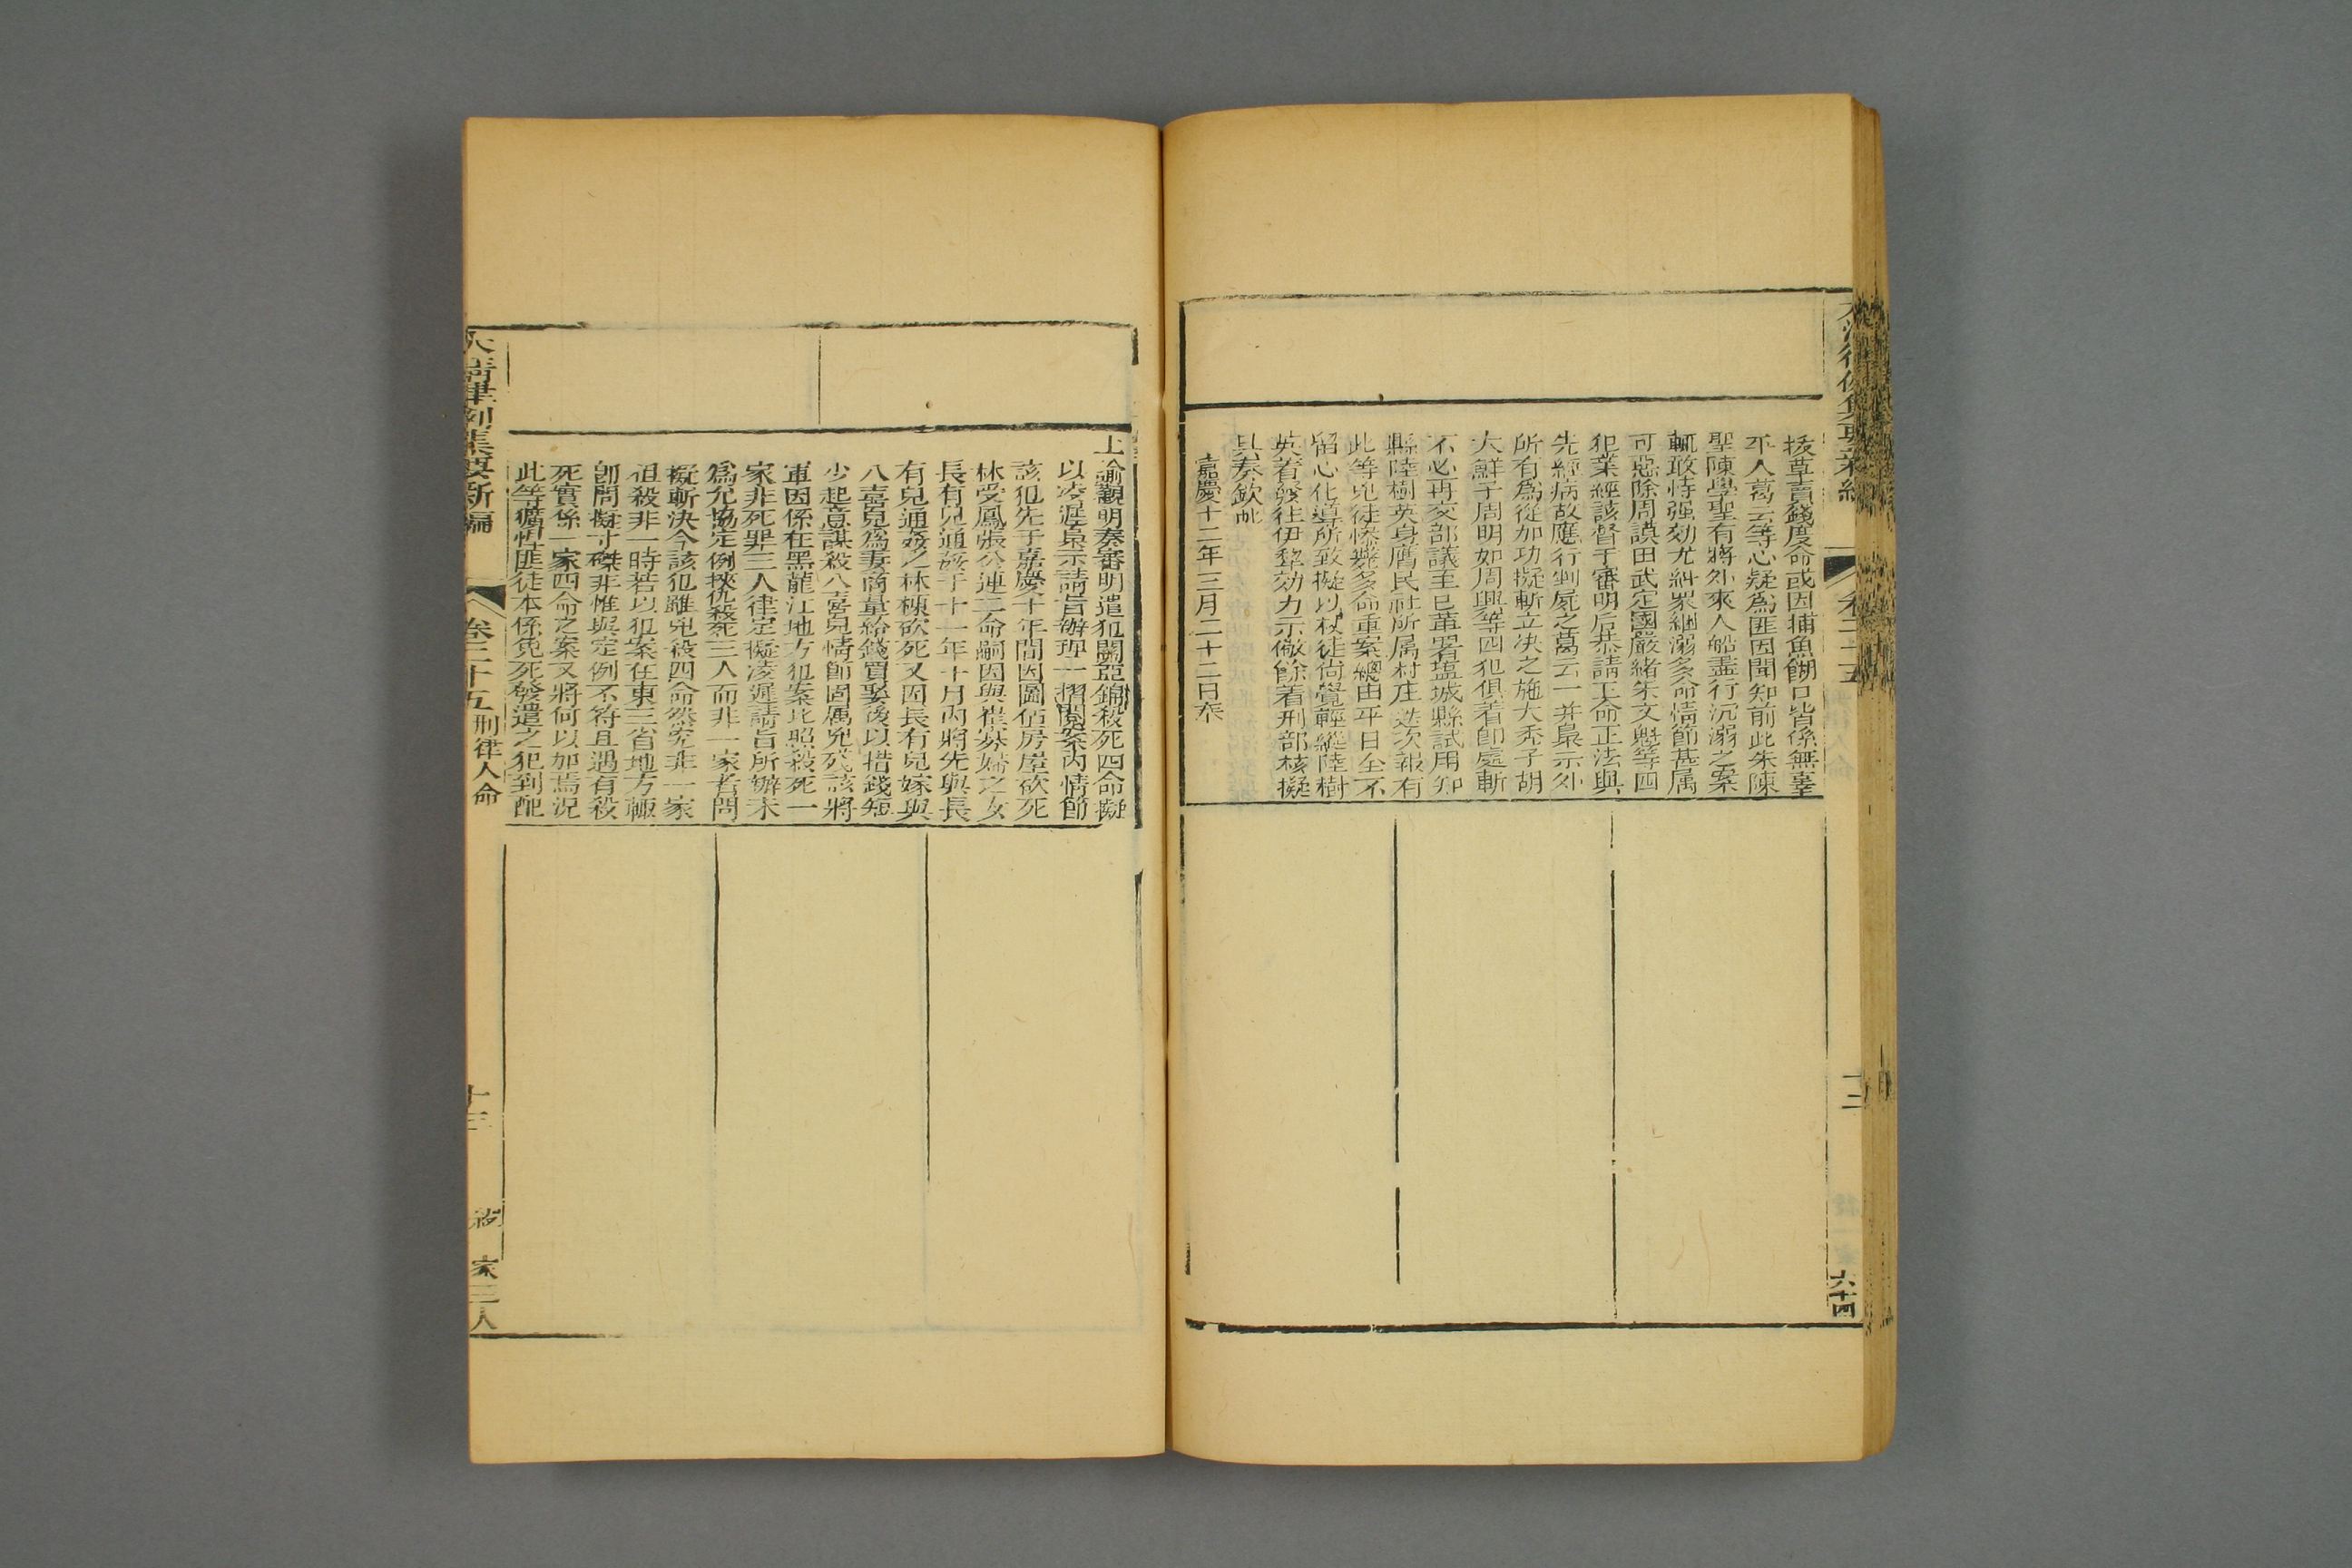 拔草賣錢度命或因捕魚餬口皆係無辜
平人葛云等心疑爲匪因聞知前此朱陳
聖陳學聖有將外來人船盡行沉溺之案
輒敢恃强効尤糾衆綑溺多命情節甚属
可惡除周謨田武定國嚴緒朱文魁等四
犯業經該督于審明后恭請王命正法與
先經病故應行剉屍之葛云一并梟示外
所有爲從加功擬斬立决之施大禿子胡
大鮮子周明如周興等四犯俱着即處斬
不必再交部議至已革署塩城縣試用知
縣陸樹英身膺民社所属村庄迭次報有
此等兇徒慘斃多命重案總由平日全不
留心化導所致擬以杖徒尙覺輕縱陸樹
英着發往伊犂効力示儆餘着刑部核擬
具奏欽此
嘉慶十二年三月二十二日奉
上諭觀明奏審明遣犯關亞錦殺死四命擬
以凌遲梟示請旨辦理一摺閱案內情節
該犯先于嘉慶十年間因圖佔房屋砍死
林受鳳張公連二命嗣因與崔寡婦之女
長有兒通姦于十一年十月內將先與長
有兒通姦之林棟砍死又因長有兒嫁與
八喜兒爲妻商量給錢買娶後以措錢短
少起意謀殺八喜兒情節固属兇殘該將
軍因係在黑龍江地方犯案比照殺死一
家非死罪三人律定擬凌遲請旨所辦未
爲允協定例挾仇殺死三人而非一家者問
擬斬决今該犯雖兇殺四命然究非一家
且殺非一時若以犯案在東三省地方輒
卽問擬寸磔非惟與定例不符且遇有殺
死實係一家四命之案又將何以加焉況
此等獷悍匪徒本係免死發遣之犯到配
大清律例集要新編
卷二十五
刑律人命
十三
家三人
六十四